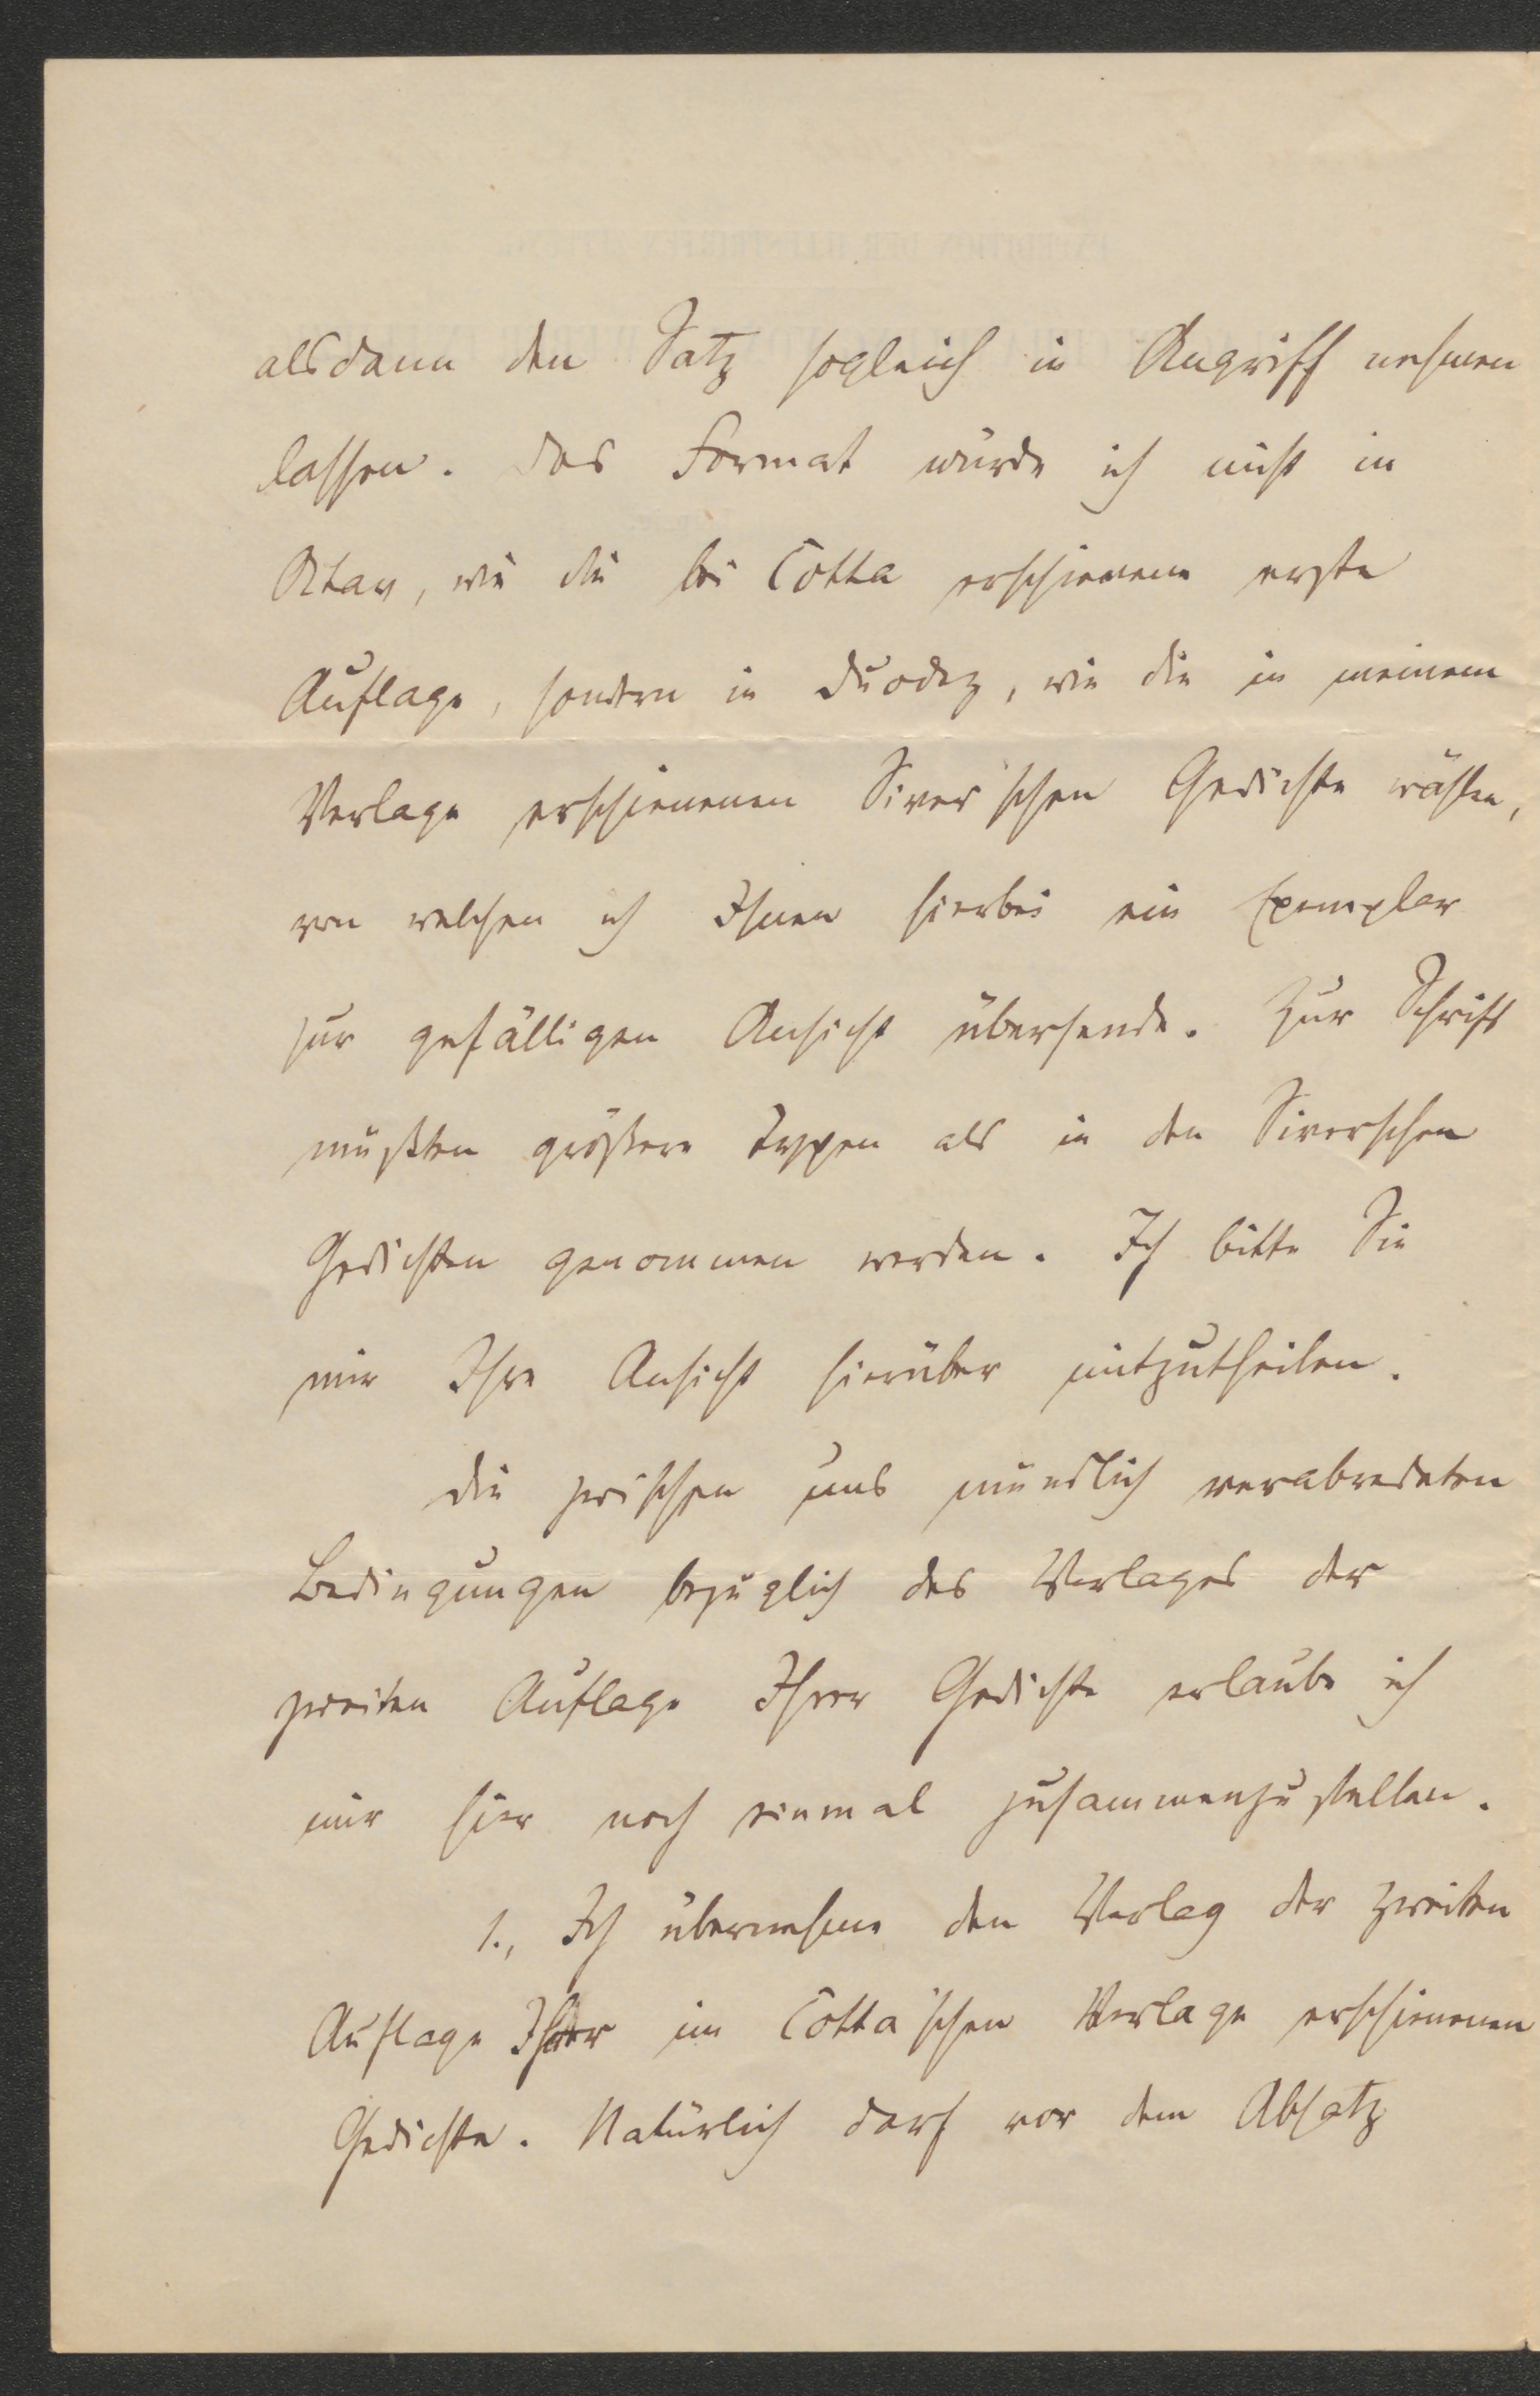 alsdann den Satz sogleich in Angriff nehmen
lassen. Das Format würde ich nicht in
Oktav, wie die bei Cotta erschienene erste
Auflage, sondern in Duodez, wie die in meinem
Verlage erschienenen Siver'schen Gedichte wählen,
von welchen ich Ihnen hierbei ein Exemplar
zur gefälligen Ansicht übersende. Zur Schrift
müßten größere Typen als in den Siverschen
Gedichten genommen werden. Ich bitte Sie
mir Ihre Ansicht hierüber mitzutheilen.
Die zwischen uns mündlich verabredeten
Bedingungen bezüglich des Verlages der
zweiten Auflage Ihrer Gedichte erlaube ich
mir hier noch einmal zusammenzustellen.
1., Ich übernehme den Verlag der zweiten
Auflage Ihrer im Cotta'schen Verlage erschienenen
Gedichte. Natürlich darf vor dem Absatz